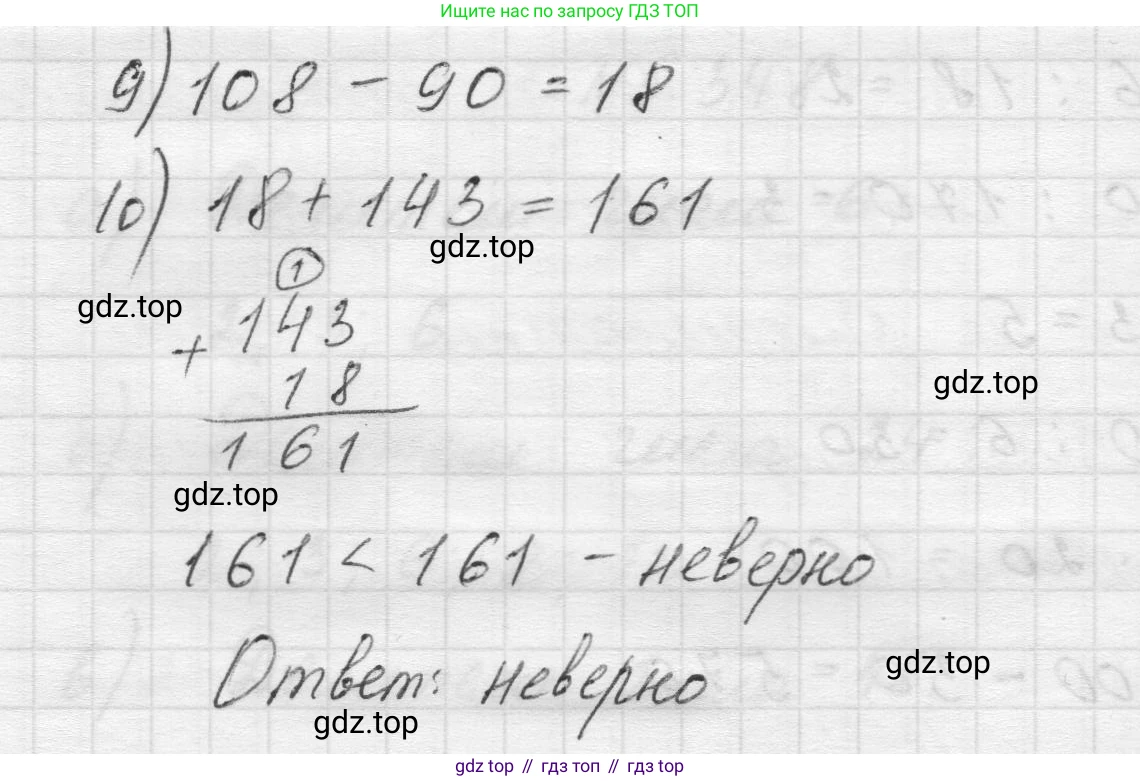 Ищите нас по запросу ГДЗ ТОП
9) 108 - 90 = 18
10) 18 + 143 = 161
gdz.top
1
gdz.top
143
+
gdz.top
18
161
gdz.top
161 < 161 - неверно
gdz.top
Ответ: неверно
gdz.top
gdz top // гдз топ // гdz top